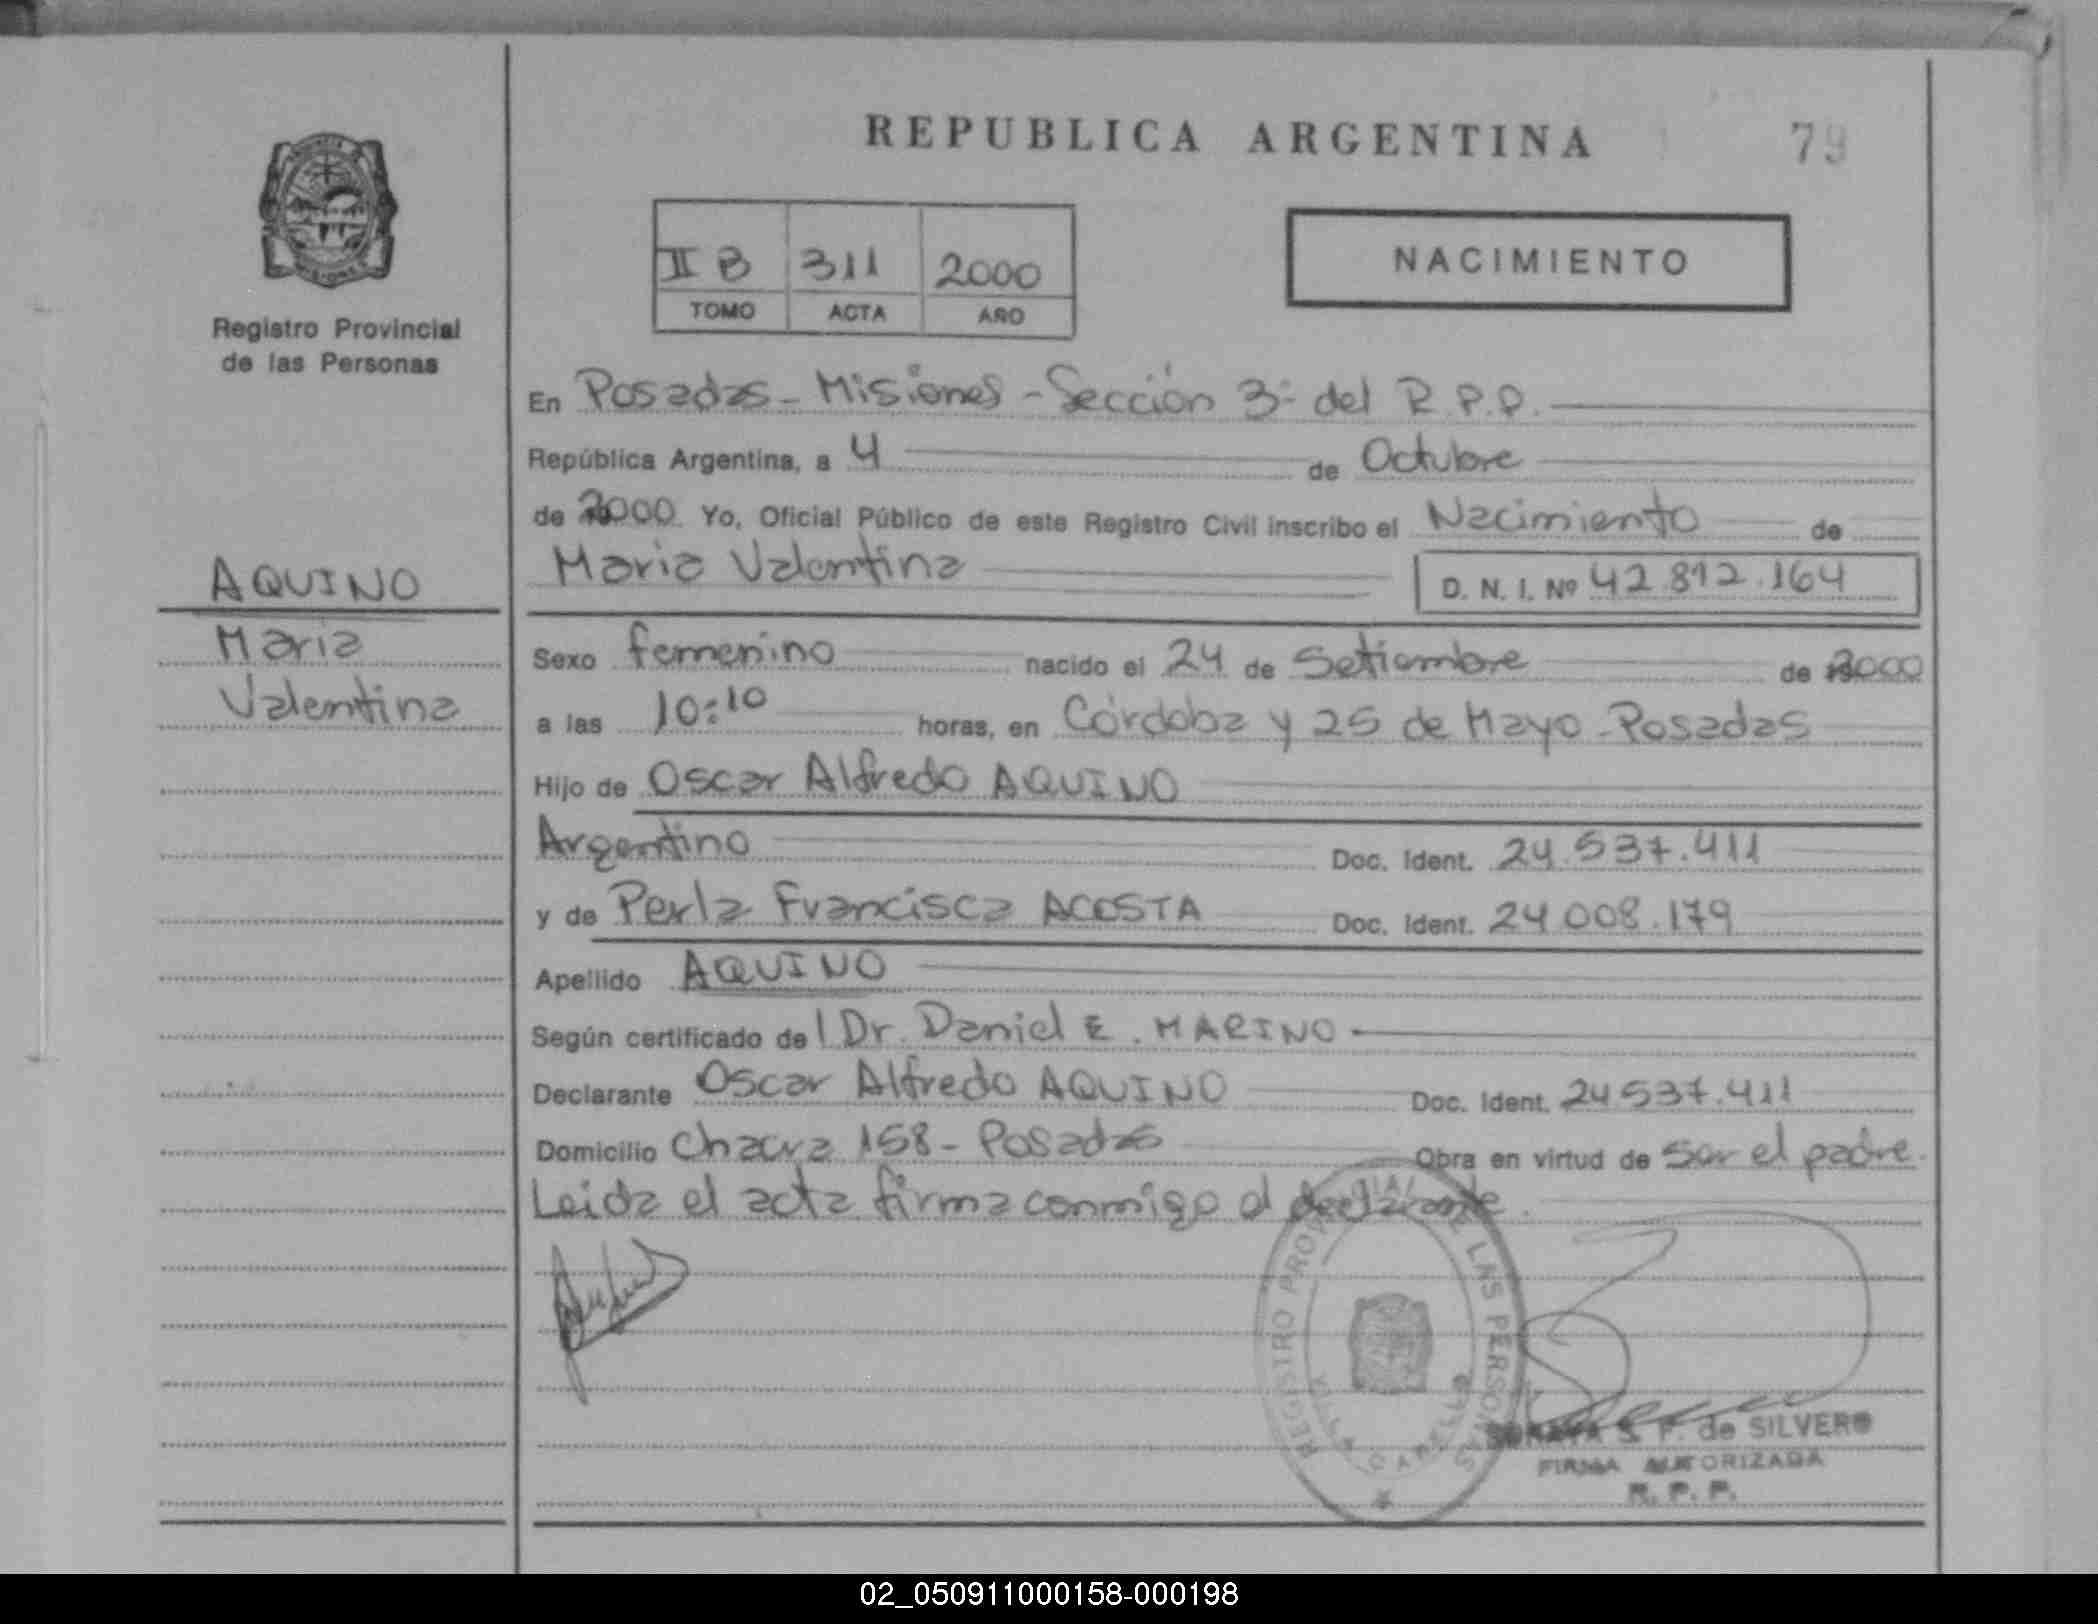 REPUBLICA ARGENTINA 79
II B 311 2000
TOMO ACTA AÑO
NACIMIENTO
Registro Provincial
de las Personas
AQUINO
Maria
Valentina
En Posadas - Misiones - Sección 3ª del R.P.P.
República Argentina, a 4 de Octubre
de 2000 Yo, Oficial Público de este Registro Civil inscribo el Nacimiento de
Maria Valentina D. N. I. Nº 42.812.164
Sexo femenino nacido el 24 de Setiembre de 2000
a las 10:10 horas, en Córdoba y 25 de Mayo - Posadas
Hijo de Oscar Alfredo AQUINO
Argentino Doc. Ident. 24.537.411
y de Perla Francisca ACOSTA Doc. Ident. 24.008.179
Apellido AQUINO
Según certificado del Dr. Daniel E. MARINO
Declarante Oscar Alfredo AQUINO Doc. Ident. 24.537.411
Domicilio Chacra 158 - Posadas Obra en virtud de ser el padre.
Leida el acta firma conmigo el declarante.
REGISTRO PROVINCIAL DE LAS PERSONAS
VILLA CABELLO
SORAYA S. F. de SILVERO
FIRMA AUTORIZADA
R. P. P.
02_050911000158-000198